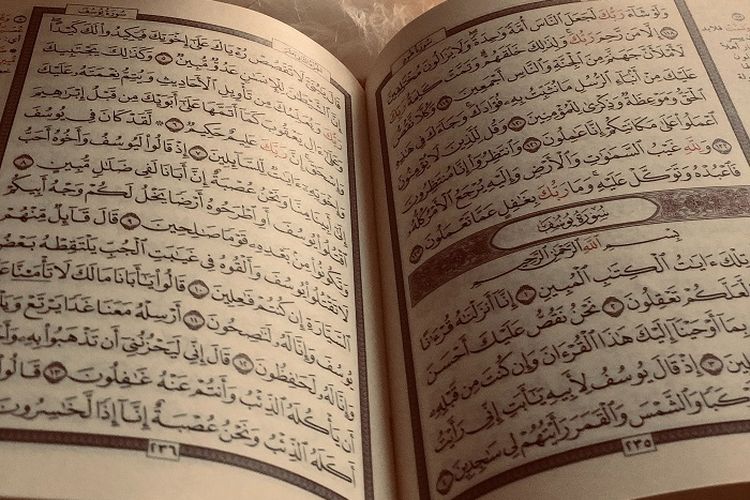 سُورَةُ هُودٍ
وَلَوْ شَآءَ رَبُّكَ لَجَعَلَ ٱلنَّاسَ أُمَّةً وَٰحِدَةً وَلَا يَزَالُونَ مُخْتَلِفِينَ
١١٨ إِلَّا مَن رَّحِمَ رَبُّكَ وَلِذَٰلِكَ خَلَقَهُمْ وَتَمَّتْ كَلِمَةُ رَبِّكَ
لَأَمْلَأَنَّ جَهَنَّمَ مِنَ ٱلْجِنَّةِ وَٱلنَّاسِ أَجْمَعِينَ ١١٩ وَكُلًّا نَّقُصُّ
عَلَيْكَ مِنْ أَنۢبَآءِ ٱلرُّسُلِ مَا نُثَبِّتُ بِهِۦ فُؤَادَكَ وَجَآءَكَ فِي هَٰذِهِ
ٱلْحَقُّ وَمَوْعِظَةٌ وَذِكْرَىٰ لِلْمُؤْمِنِينَ ١٢٠ وَقُل لِّلَّذِينَ لَا يُؤْمِنُونَ
ٱعْمَلُوا۟ عَلَىٰ مَكَانَتِكُمْ إِنَّا عَٰمِلُونَ ١٢١ وَٱنتَظِرُوٓا۟ إِنَّا مُنتَظِرُونَ
١٢٢ وَلِلَّهِ غَيْبُ ٱلسَّمَٰوَٰتِ وَٱلْأَرْضِ وَإِلَيْهِ يُرْجَعُ ٱلْأَمْرُ كُلُّهُۥ
فَٱعْبُدْهُ وَتَوَكَّلْ عَلَيْهِ وَمَا رَبُّكَ بِغَٰفِلٍ عَمَّا تَعْمَلُونَ ١٢٣
سُورَةُ يُوسُفَ
بِسْمِ ٱللَّهِ ٱلرَّحْمَٰنِ ٱلرَّحِيمِ
تِلْكَ ءَايَٰتُ ٱلْكِتَٰبِ ٱلْمُبِينِ ١ إِنَّآ أَنزَلْنَٰهُ قُرْءَٰنًا
لَّعَلَّكُمْ تَعْقِلُونَ ٢ نَحْنُ نَقُصُّ عَلَيْكَ أَحْسَنَ
بِمَآ أَوْحَيْنَآ إِلَيْكَ هَٰذَا ٱلْقُرْءَانَ وَإِن كُنتَ مِن قَبْلِهِۦ
٣ إِذْ قَالَ يُوسُفُ لِأَبِيهِ يَٰٓأَبَتِ إِنِّي رَأَيْتُ
كَوْكَبًا وَٱلشَّمْسَ وَٱلْقَمَرَ رَأَيْتُهُمْ لِي سَٰجِدِينَ ٤
٢٣٥
سُورَةُ يُوسُفَ
قَالَ يَٰبُنَيَّ لَا تَقْصُصْ رُءْيَاكَ عَلَىٰٓ إِخْوَتِكَ فَيَكِيدُوا۟ لَكَ كَيْدًا
إِنَّ ٱلشَّيْطَٰنَ لِلْإِنسَٰنِ عَدُوٌّ مُّبِينٌ ٥ وَكَذَٰلِكَ يَجْتَبِيكَ
رَبُّكَ وَيُعَلِّمُكَ مِن تَأْوِيلِ ٱلْأَحَادِيثِ وَيُتِمُّ نِعْمَتَهُۥ عَلَيْكَ
وَعَلَىٰٓ ءَالِ يَعْقُوبَ كَمَآ أَتَمَّهَا عَلَىٰٓ أَبَوَيْكَ مِن قَبْلُ إِبْرَٰهِيمَ
وَإِسْحَٰقَ إِنَّ رَبَّكَ عَلِيمٌ حَكِيمٌ ٦ ۞ لَّقَدْ كَانَ فِي يُوسُفَ
وَإِخْوَتِهِۦٓ ءَايَٰتٌ لِّلسَّآئِلِينَ ٧ إِذْ قَالُوا۟ لَيُوسُفُ وَأَخُوهُ أَحَبُّ
إِلَىٰٓ أَبِينَا مِنَّا وَنَحْنُ عُصْبَةٌ إِنَّ أَبَانَا لَفِي ضَلَٰلٍ مُّبِينٍ ٨
ٱقْتُلُوا۟ يُوسُفَ أَوِ ٱطْرَحُوهُ أَرْضًا يَخْلُ لَكُمْ وَجْهُ أَبِيكُمْ
وَتَكُونُوا۟ مِنۢ بَعْدِهِۦ قَوْمًا صَٰلِحِينَ ٩ قَالَ قَآئِلٌ مِّنْهُمْ
لَا تَقْتُلُوا۟ يُوسُفَ وَأَلْقُوهُ فِي غَيَٰبَتِ ٱلْجُبِّ يَلْتَقِطْهُ بَعْضُ
ٱلسَّيَّارَةِ إِن كُنتُمْ فَٰعِلِينَ ١٠ قَالُوا۟ يَٰٓأَبَانَا مَا لَكَ لَا تَأْمَ۫نَّا عَلَىٰ
يُوسُفَ وَإِنَّا لَهُۥ لَنَٰصِحُونَ ١١ أَرْسِلْهُ مَعَنَا غَدًا يَرْتَعْ وَيَلْعَبْ
وَإِنَّا لَهُۥ لَحَٰفِظُونَ ١٢ قَالَ إِنِّي لَيَحْزُنُنِيٓ أَن تَذْهَبُوا۟ بِهِۦ وَأَخَافُ
أَن يَأْكُلَهُ ٱلذِّئْبُ وَأَنتُمْ عَنْهُ غَٰفِلُونَ ١٣ قَالُوا۟ لَئِنْ
أَكَلَهُ ٱلذِّئْبُ وَنَحْنُ عُصْبَةٌ إِنَّآ إِذًا لَّخَٰسِرُونَ
٢٣٦